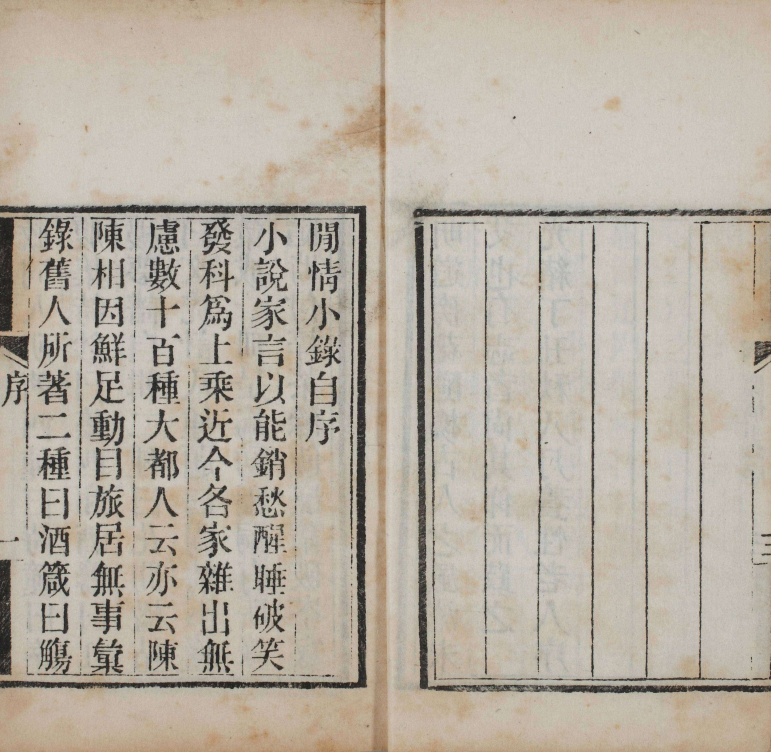 三
閒情小錄自序
小說家言以能銷愁醒睡破笑
發科爲上乘近今各家雜出無
慮數十百種大都人云亦云陳
陳相因鮮足動目旅居無事彙
錄舊人所著二種曰酒箴曰觴
序
一